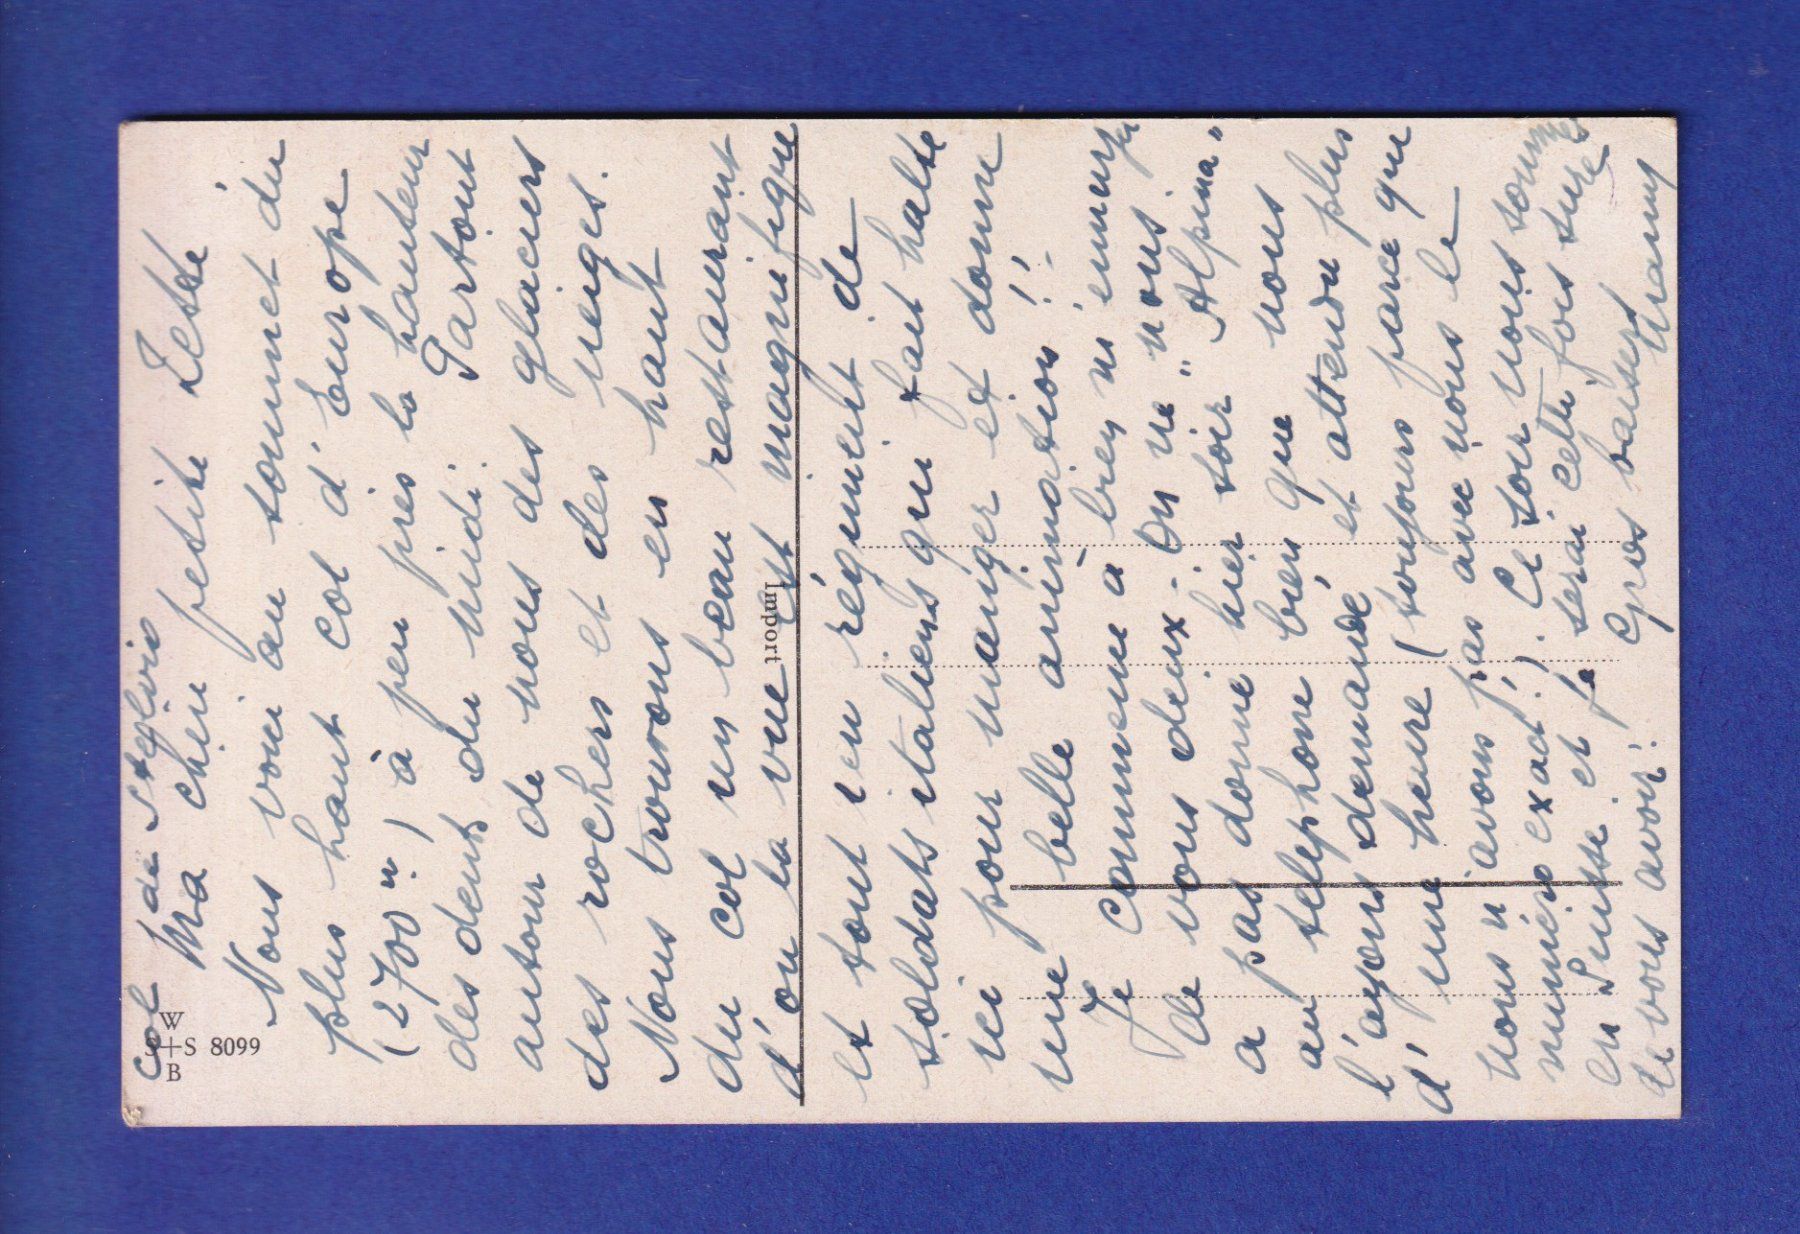 Col de Stelvio
Ma chère petite Zézé
Nous voici au sommet du
plus haut col d'Europe
(2700 m) à peu près la hauteur
des dents du midi. Partout
autour de nous des glaciers
des rochers et des neiges.
Nous trouvons en haut
du col un beau restaurant
d'ou la vue est magnifique
et tout un régiment de
soldats italiens qui fait halte
ici pour manger et donne
une belle animation !!
Je commence à bien m'ennuyer
de vous deux - On ne nous
a pas donné hier soir "Alpina"
au téléphone bien que nous
l'ayons demandé et attendu plus
d'une heure (toujours parce que
nous n'avons pas avec nous le
numéro exact!). Ce soir nous sommes
en Suisse et je serai cette fois sure
de vous avoir! Gros baisers
Mamy
W
S+S 8099
B
Import